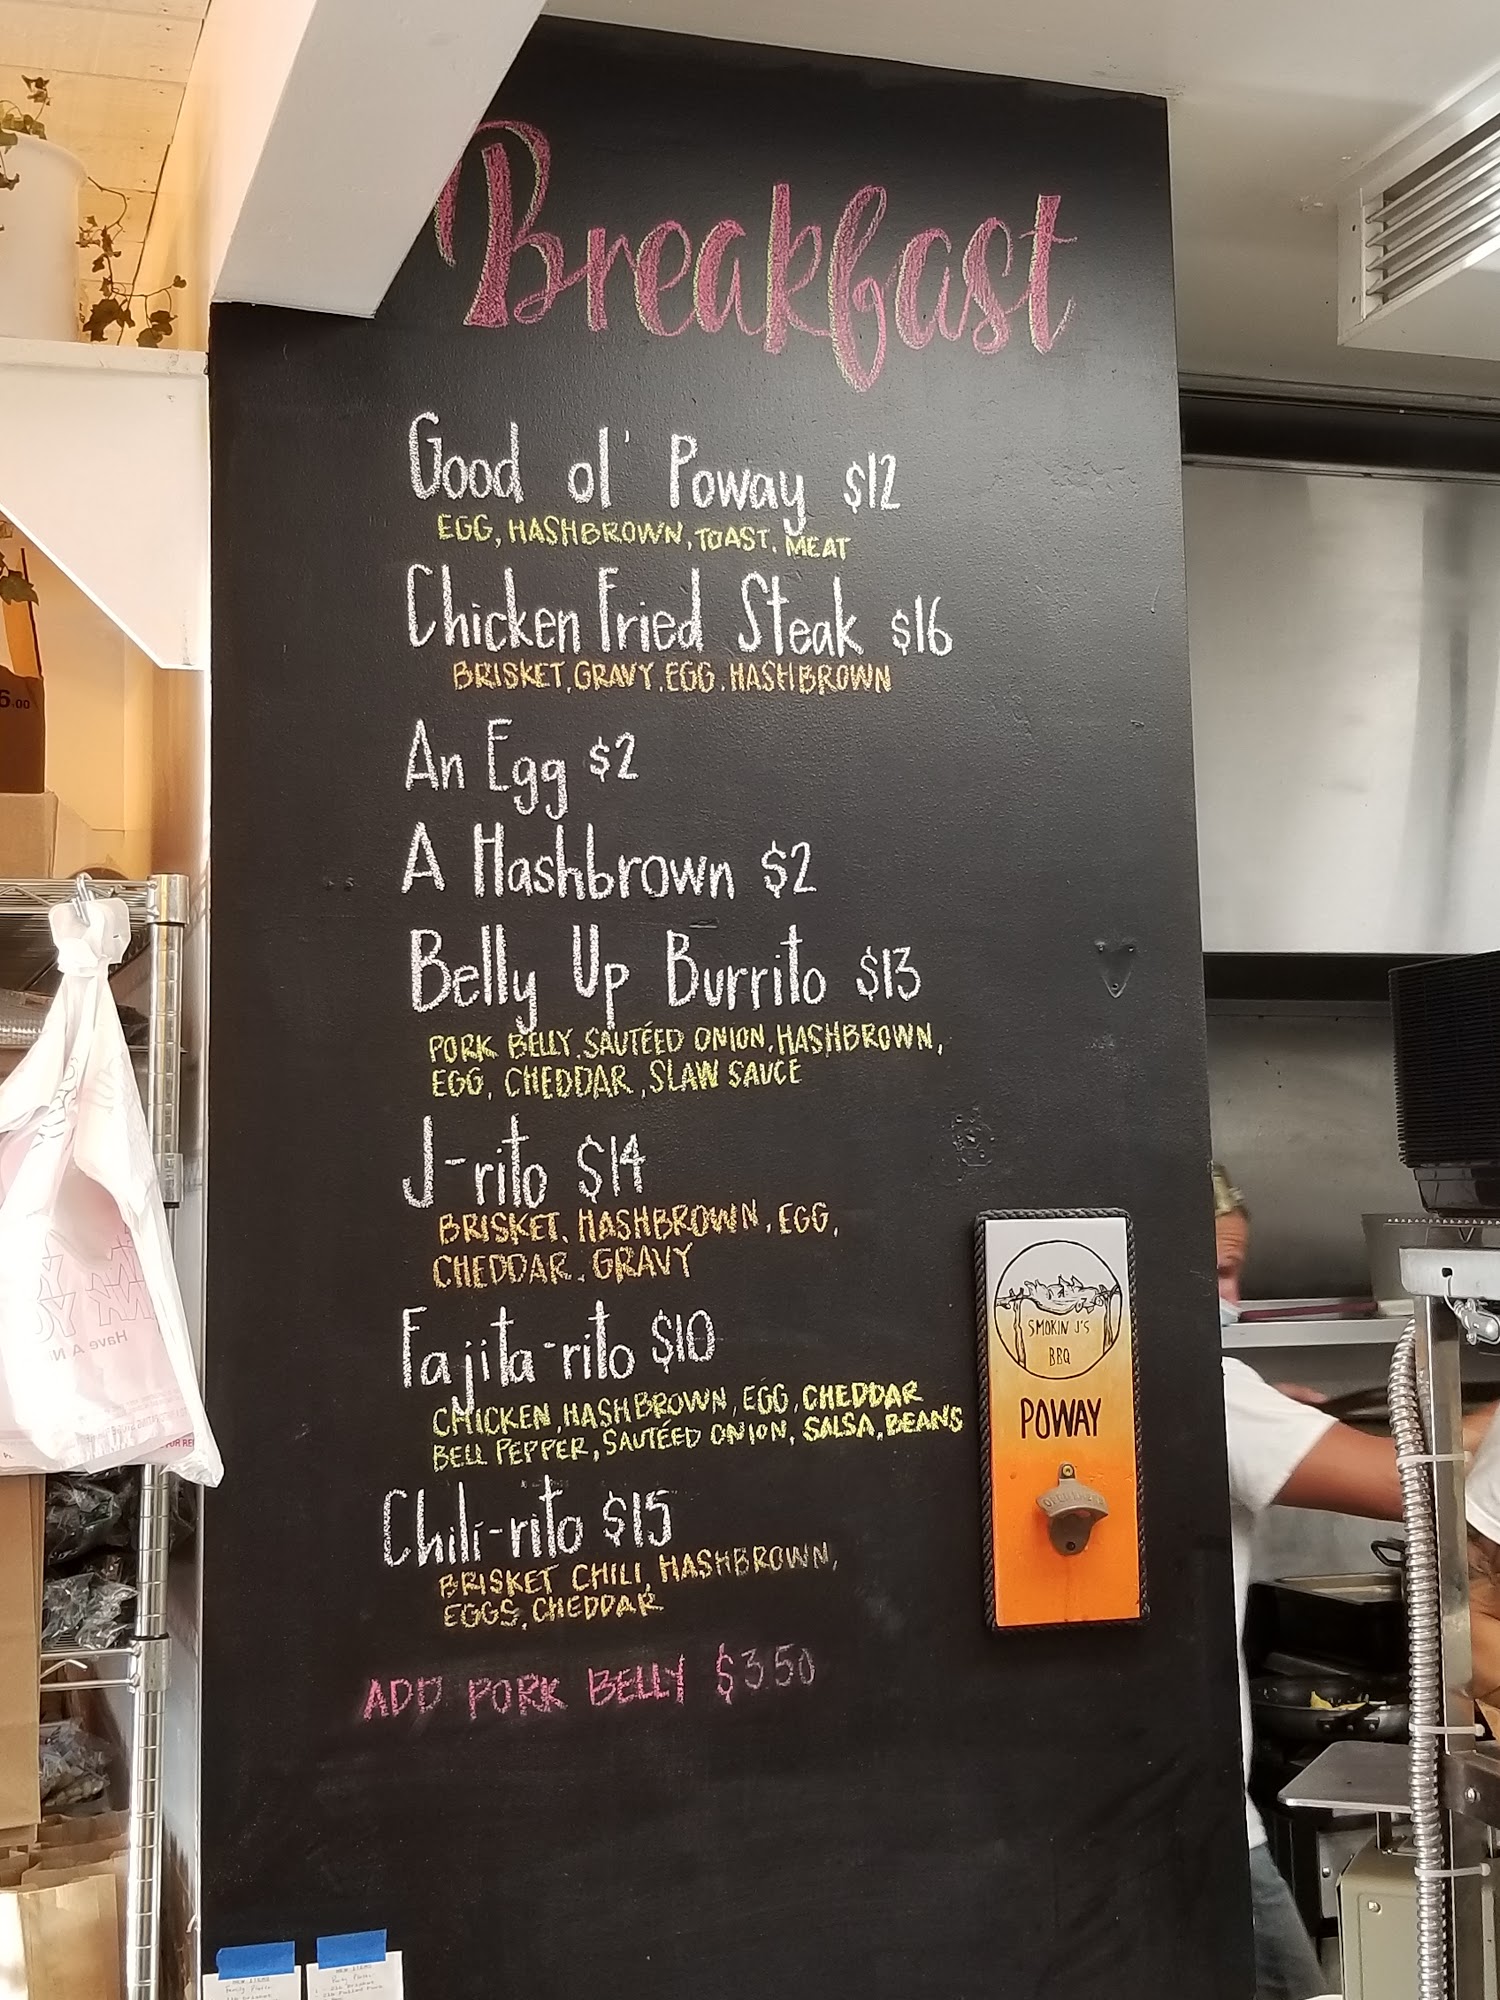 Breakfast
Good ol' Poway $12
EGG, HASHBROWN, TOAST, MEAT
Chicken Fried Steak $16
BRISKET, GRAVY, EGG, HASHBROWN
An Egg $2
A Hashbrown $2
Belly Up Burrito $13
PORK BELLY, SAUTÉED ONION, HASHBROWN,
EGG, CHEDDAR, SLAW SAUCE
J-rito $14
BRISKET, HASHBROWN, EGG,
CHEDDAR, GRAVY
Fajita-rito $10
CHICKEN, HASHBROWN, EGG, CHEDDAR
BELL PEPPER, SAUTÉED ONION, SALSA, BEANS
Chili-rito $15
BRISKET CHILI, HASHBROWN,
EGGS, CHEDDAR
ADD PORK BELLY $3.50
SMOKIN J'S
BBQ
POWAY
6.00
Have A N
NEW ITEMS
Family Platter